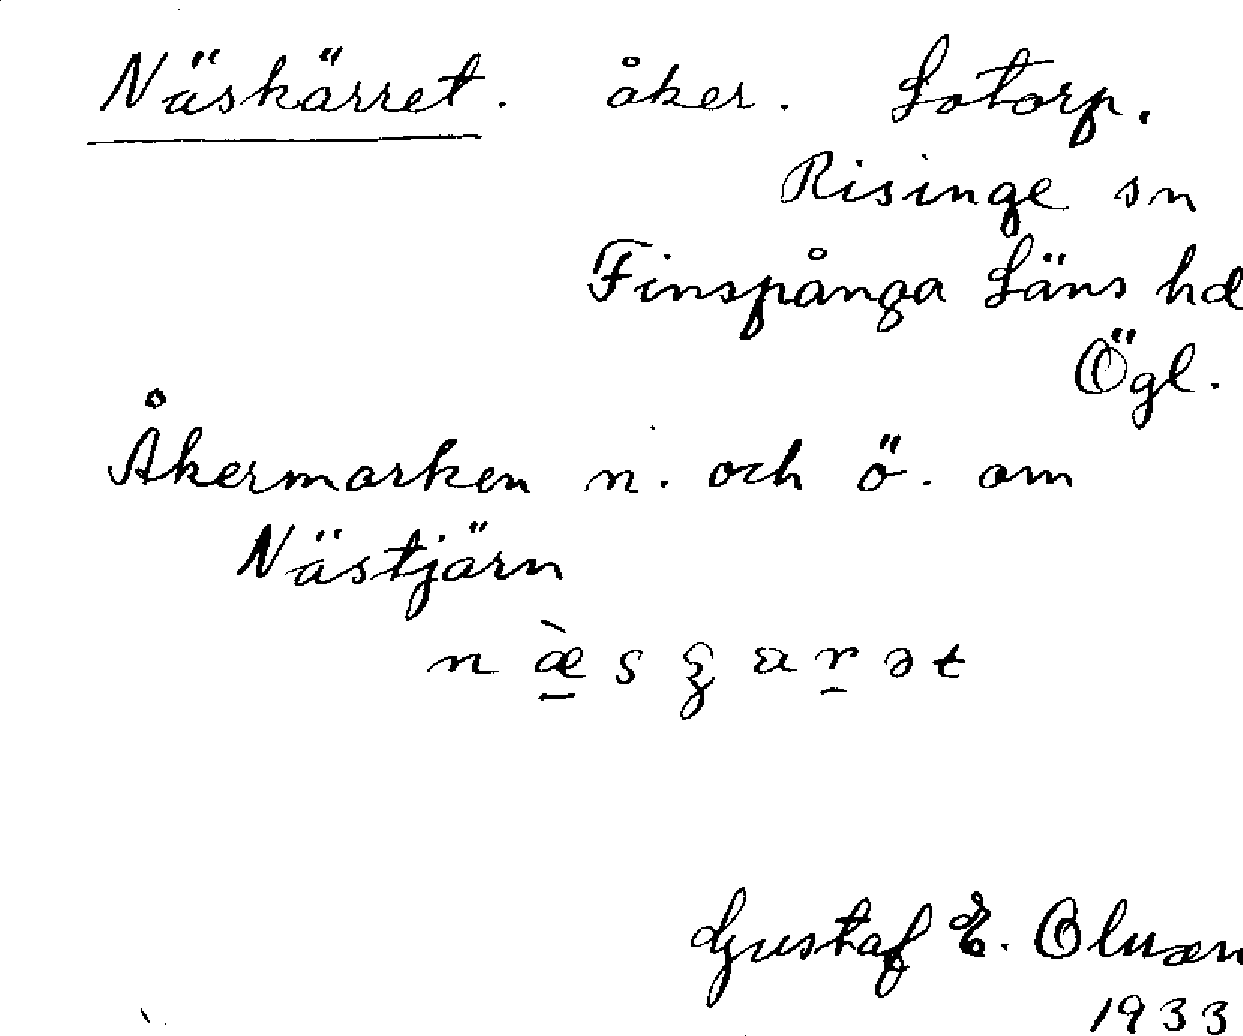 Näskärret. åker. Lotorp.
Risinge sn
Finspånga Läns hd
Ögl.
Åkermarken n. och ö. om
Nästjärn
Gustaf E.
1933